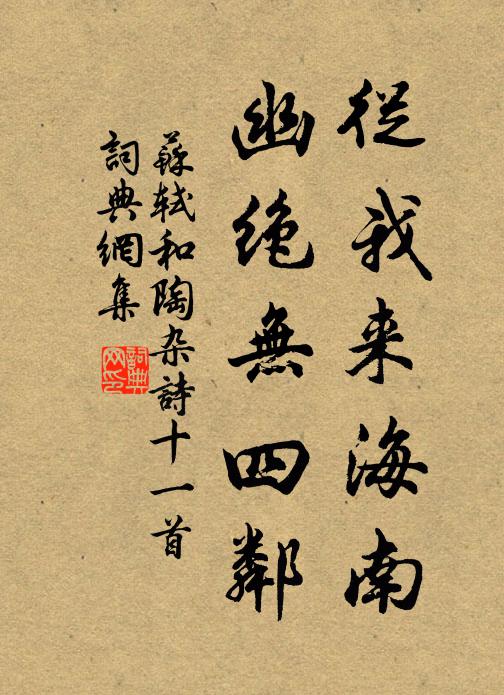 從我来海南
幽絶無四鄰
蘇軾和陶杂詩十一首
詞典網集
詞典网印